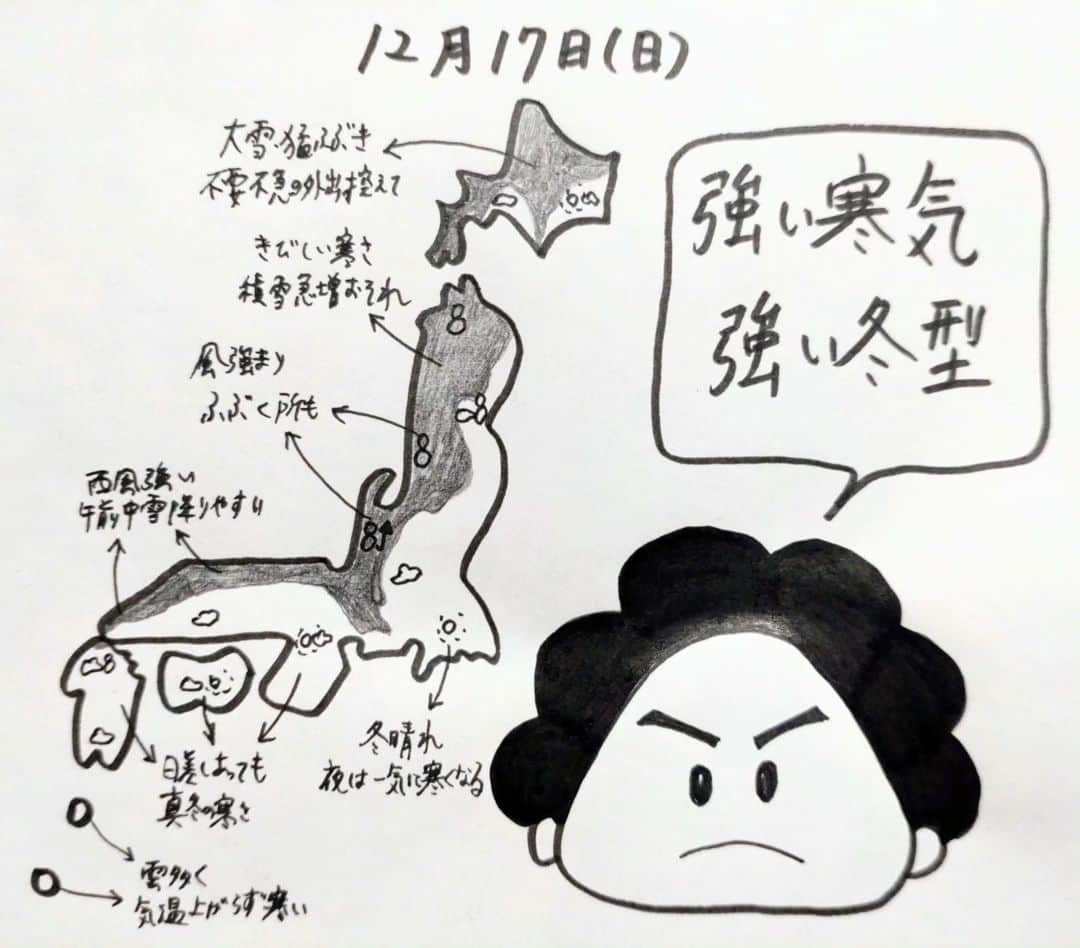 12月17日(日)
大雪・猛ふぶき
不要不急の外出控えて
きびしい寒さ
積雪急増おそれ
風強まり
ふぶく所も
西風強い
午前中雪降りやすい
強い寒気
強い冬型
冬晴れ
夜は一気に寒くなる
日差しあっても
真冬の寒さ
雲多く
気温上がらず寒い